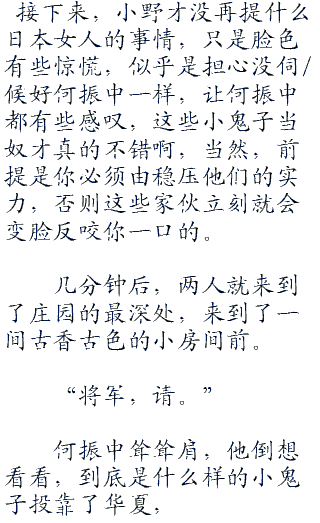 接下来，小野才没再提什么
日本女人的事情，只是脸色
有些惊慌，似乎是担心没伺/
候好何振中一样，让何振中
都有些感叹，这些小鬼子当
奴才真的不错啊，当然，前
提是你必须由稳压他们的实
力，否则这些家伙立刻就会
变脸反咬你一口的。
几分钟后，两人就来到
了庄园的最深处，来到了一
间古香古色的小房间前。
“将军，请。”
何振中耸耸肩，他倒想
看看，到底是什么样的小鬼
子投靠了华夏，